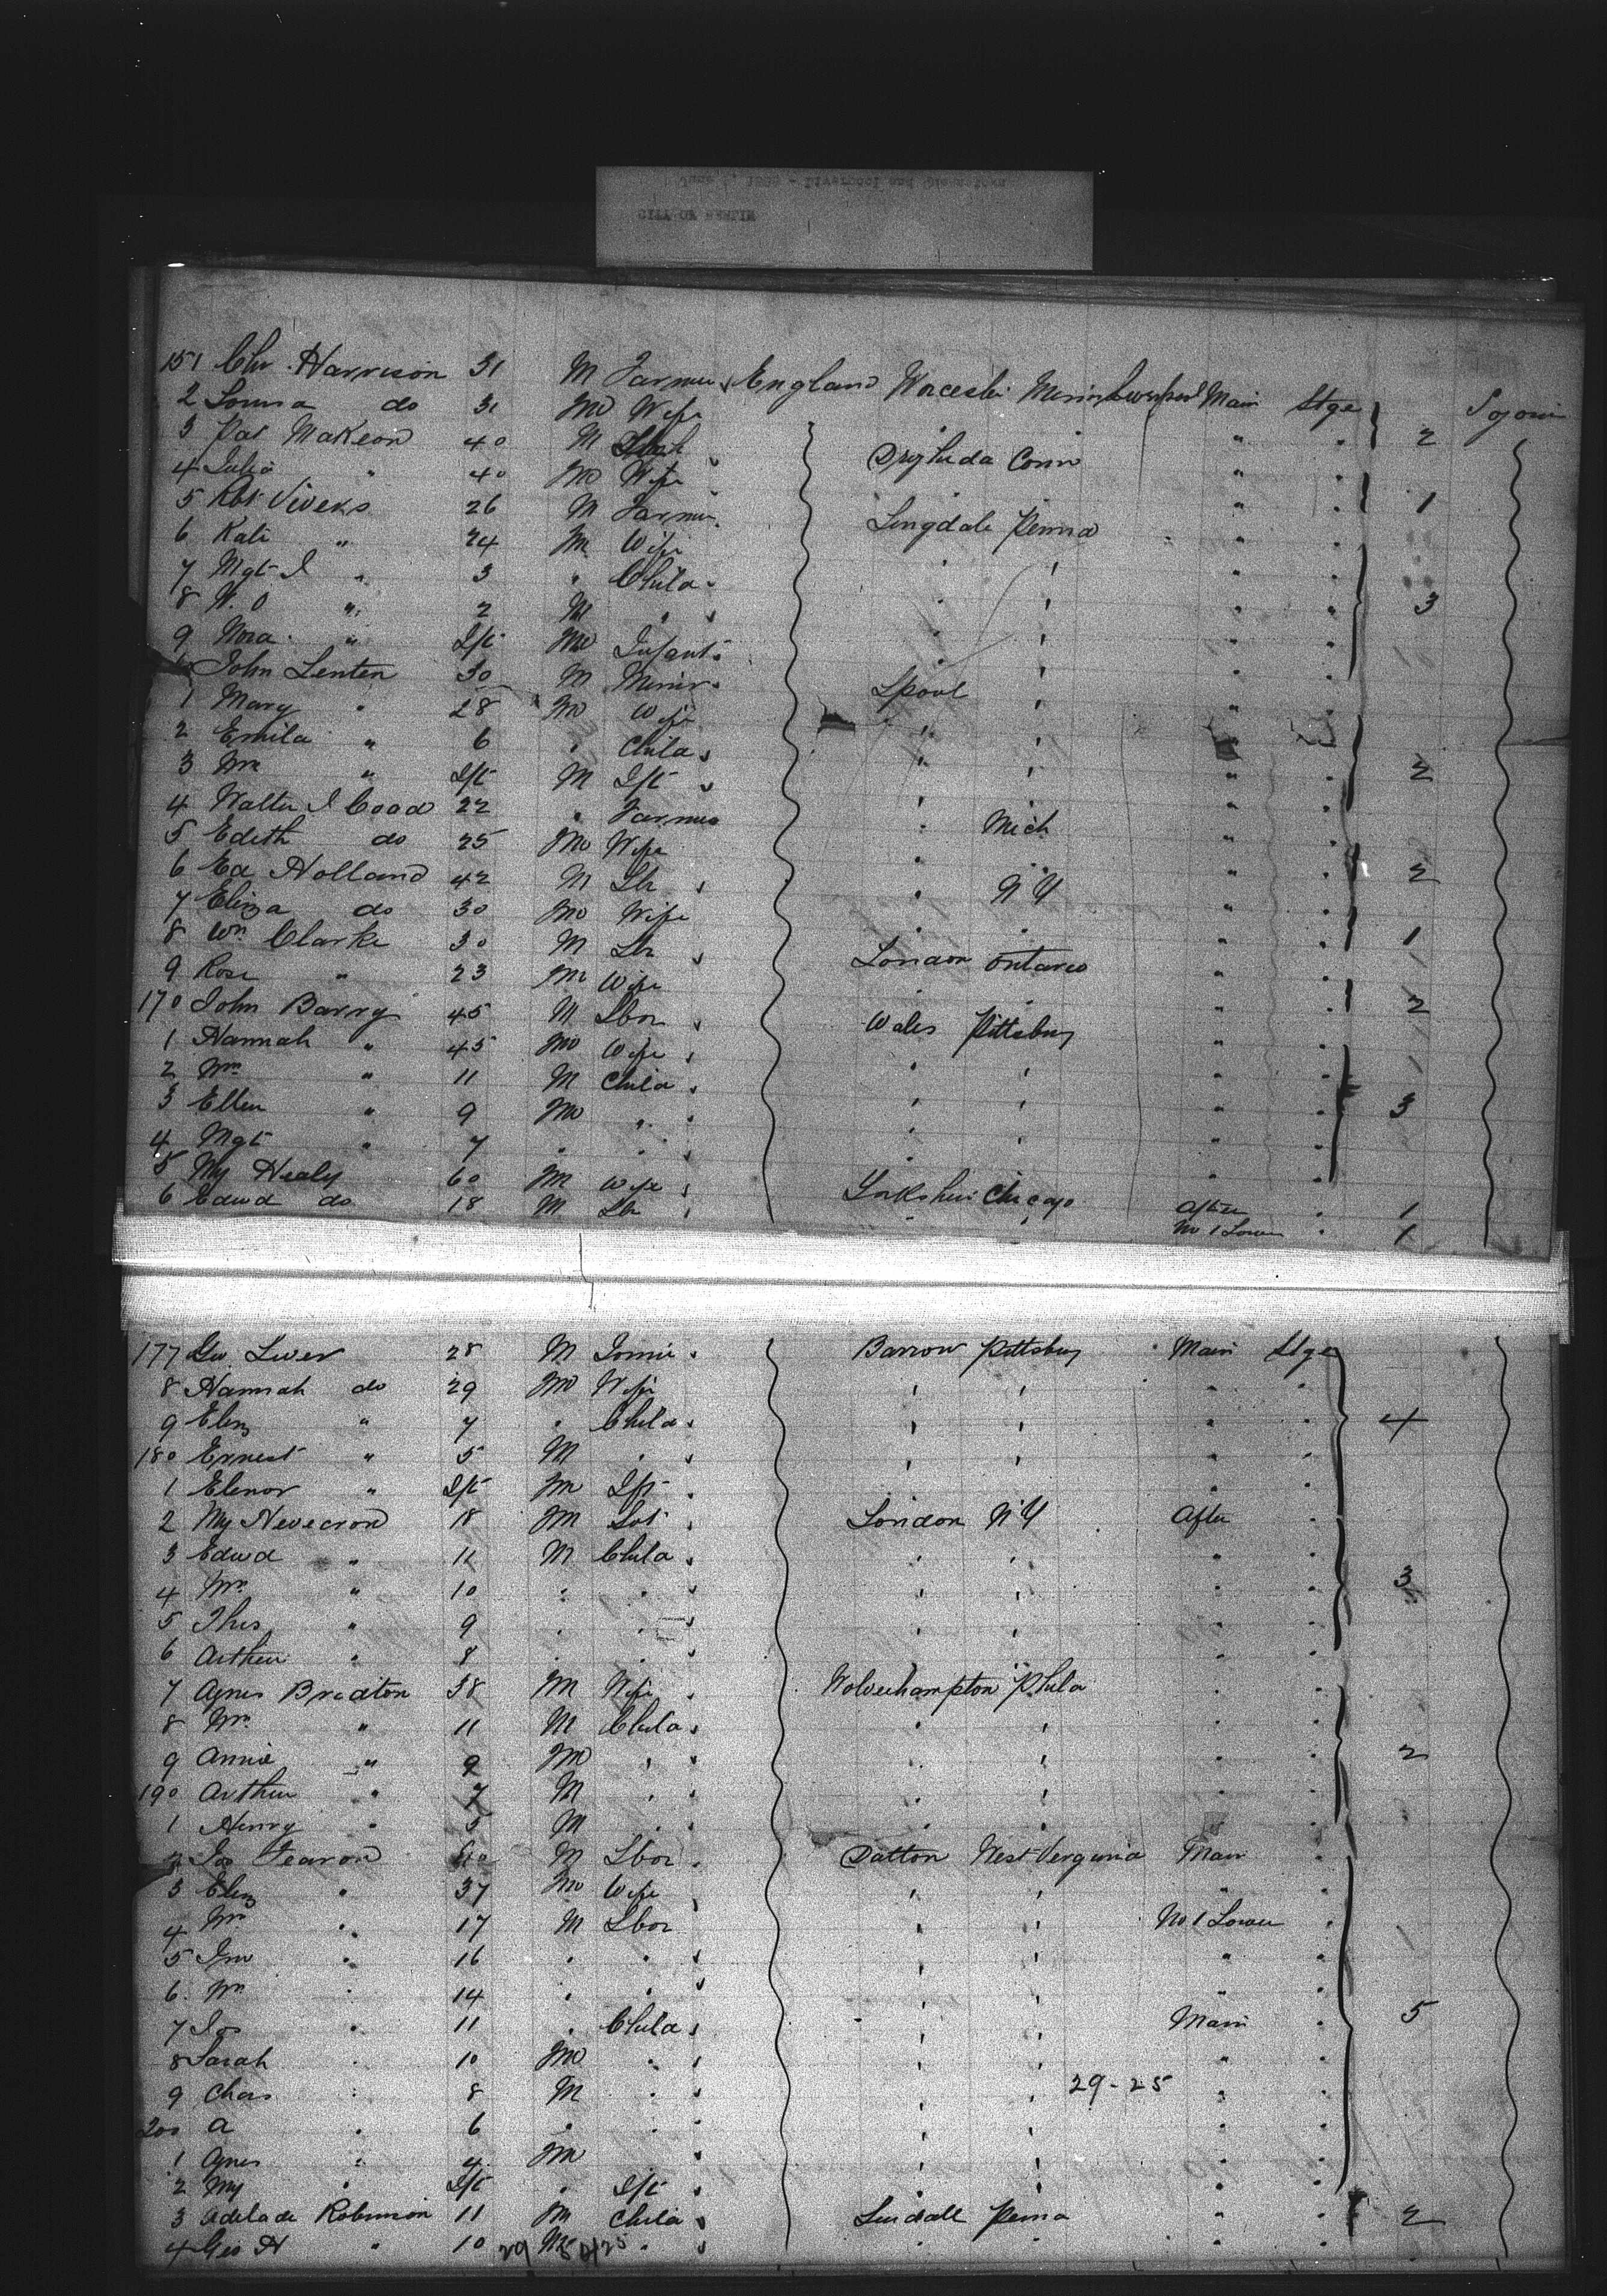 CITY OF BERLIN
151 Chr. Harrison 31 M Farmer England Worcester Main Stge 2
2 Louisa do 31 Wife
3 Pat McKeon 40 M " Drogheda Conn " 1
4 Julia " 40 Wife
5 Robt Viveks 26 M Farmer Lingdale Penna "
6 Kate " 24 Wife
7 Mgt J " 3 " Child "
8 W. O " 2 M " " 3
9 Nora " Ift Infant "
John Lenten 30 M Miner Lpool "
1 Mary " 28 Wife
2 Emila " 6 " Child "
3 Wm " Ift M Ift " 2
4 Walter J Coad 22 " Farmer " Mich "
5 Edith do 25 Wife " 2
6 Ed Holland 42 M Lbr " N Y "
7 Eliza do 30 Wife " 1
8 Wm Clarke 30 M Lbr London Ontario "
9 Rose " 23 Wife " 2
170 John Barry 45 M Lbor Wales Pittsburg "
1 Hannah " 45 Wife "
2 Wm " 11 M Child "
3 Ellen " 9 " " 3
4 Mgt " 7 " "
5 My Healy 60 Wife Yorkshire Chicago After " 1
6 Edwd do 18 M Lbr " " No 1 Lower " 1
177 Geo. Liver 28 M Barrow Pittsburg Main Stge
8 Hannah do 29 Wife " " " "
9 Eliz " 7 " Child " " " " 4
180 Ernest " 5 M " " " " "
1 Elenor " Ift Ift "
2 My 18 London N Y After "
3 Edwd " 11 M Child " " " "
4 Wm " 10 " " " " " " 3
5 Thos " 9 " " " " " "
6 Arthur " 8 " " "
7 Agnes Bredton 38 Wife Wolverhampton Phila " "
8 Wm " 11 M Child " " " "
9 Annie " 9 " " " " " 2
190 Arthur " 7 M " " " " "
1 Henry " 5 M " " " "
2 Jos Fearon 40 M Lbor Dalton West Verginia Main "
3 Eliz " 37 Wife " " " "
4 Wm " 17 M Lbor " " No. 1 Lower "
5 Jno " 16 " " " " " "
6 Wm " 14 " " " " " "
7 Jos " 11 " Child " " Main " 5
8 Sarah " 10 " " " " "
9 Chas " 8 M " " " 29-25 " "
200 A " 6 " " " " " "
1 Agnes " 4 " " " "
2 My " Ift " Ift " " " "
3 Adelade Robinson 11 Child Lindall Penna " " 2
4 Geo H " 10 M " " " " "